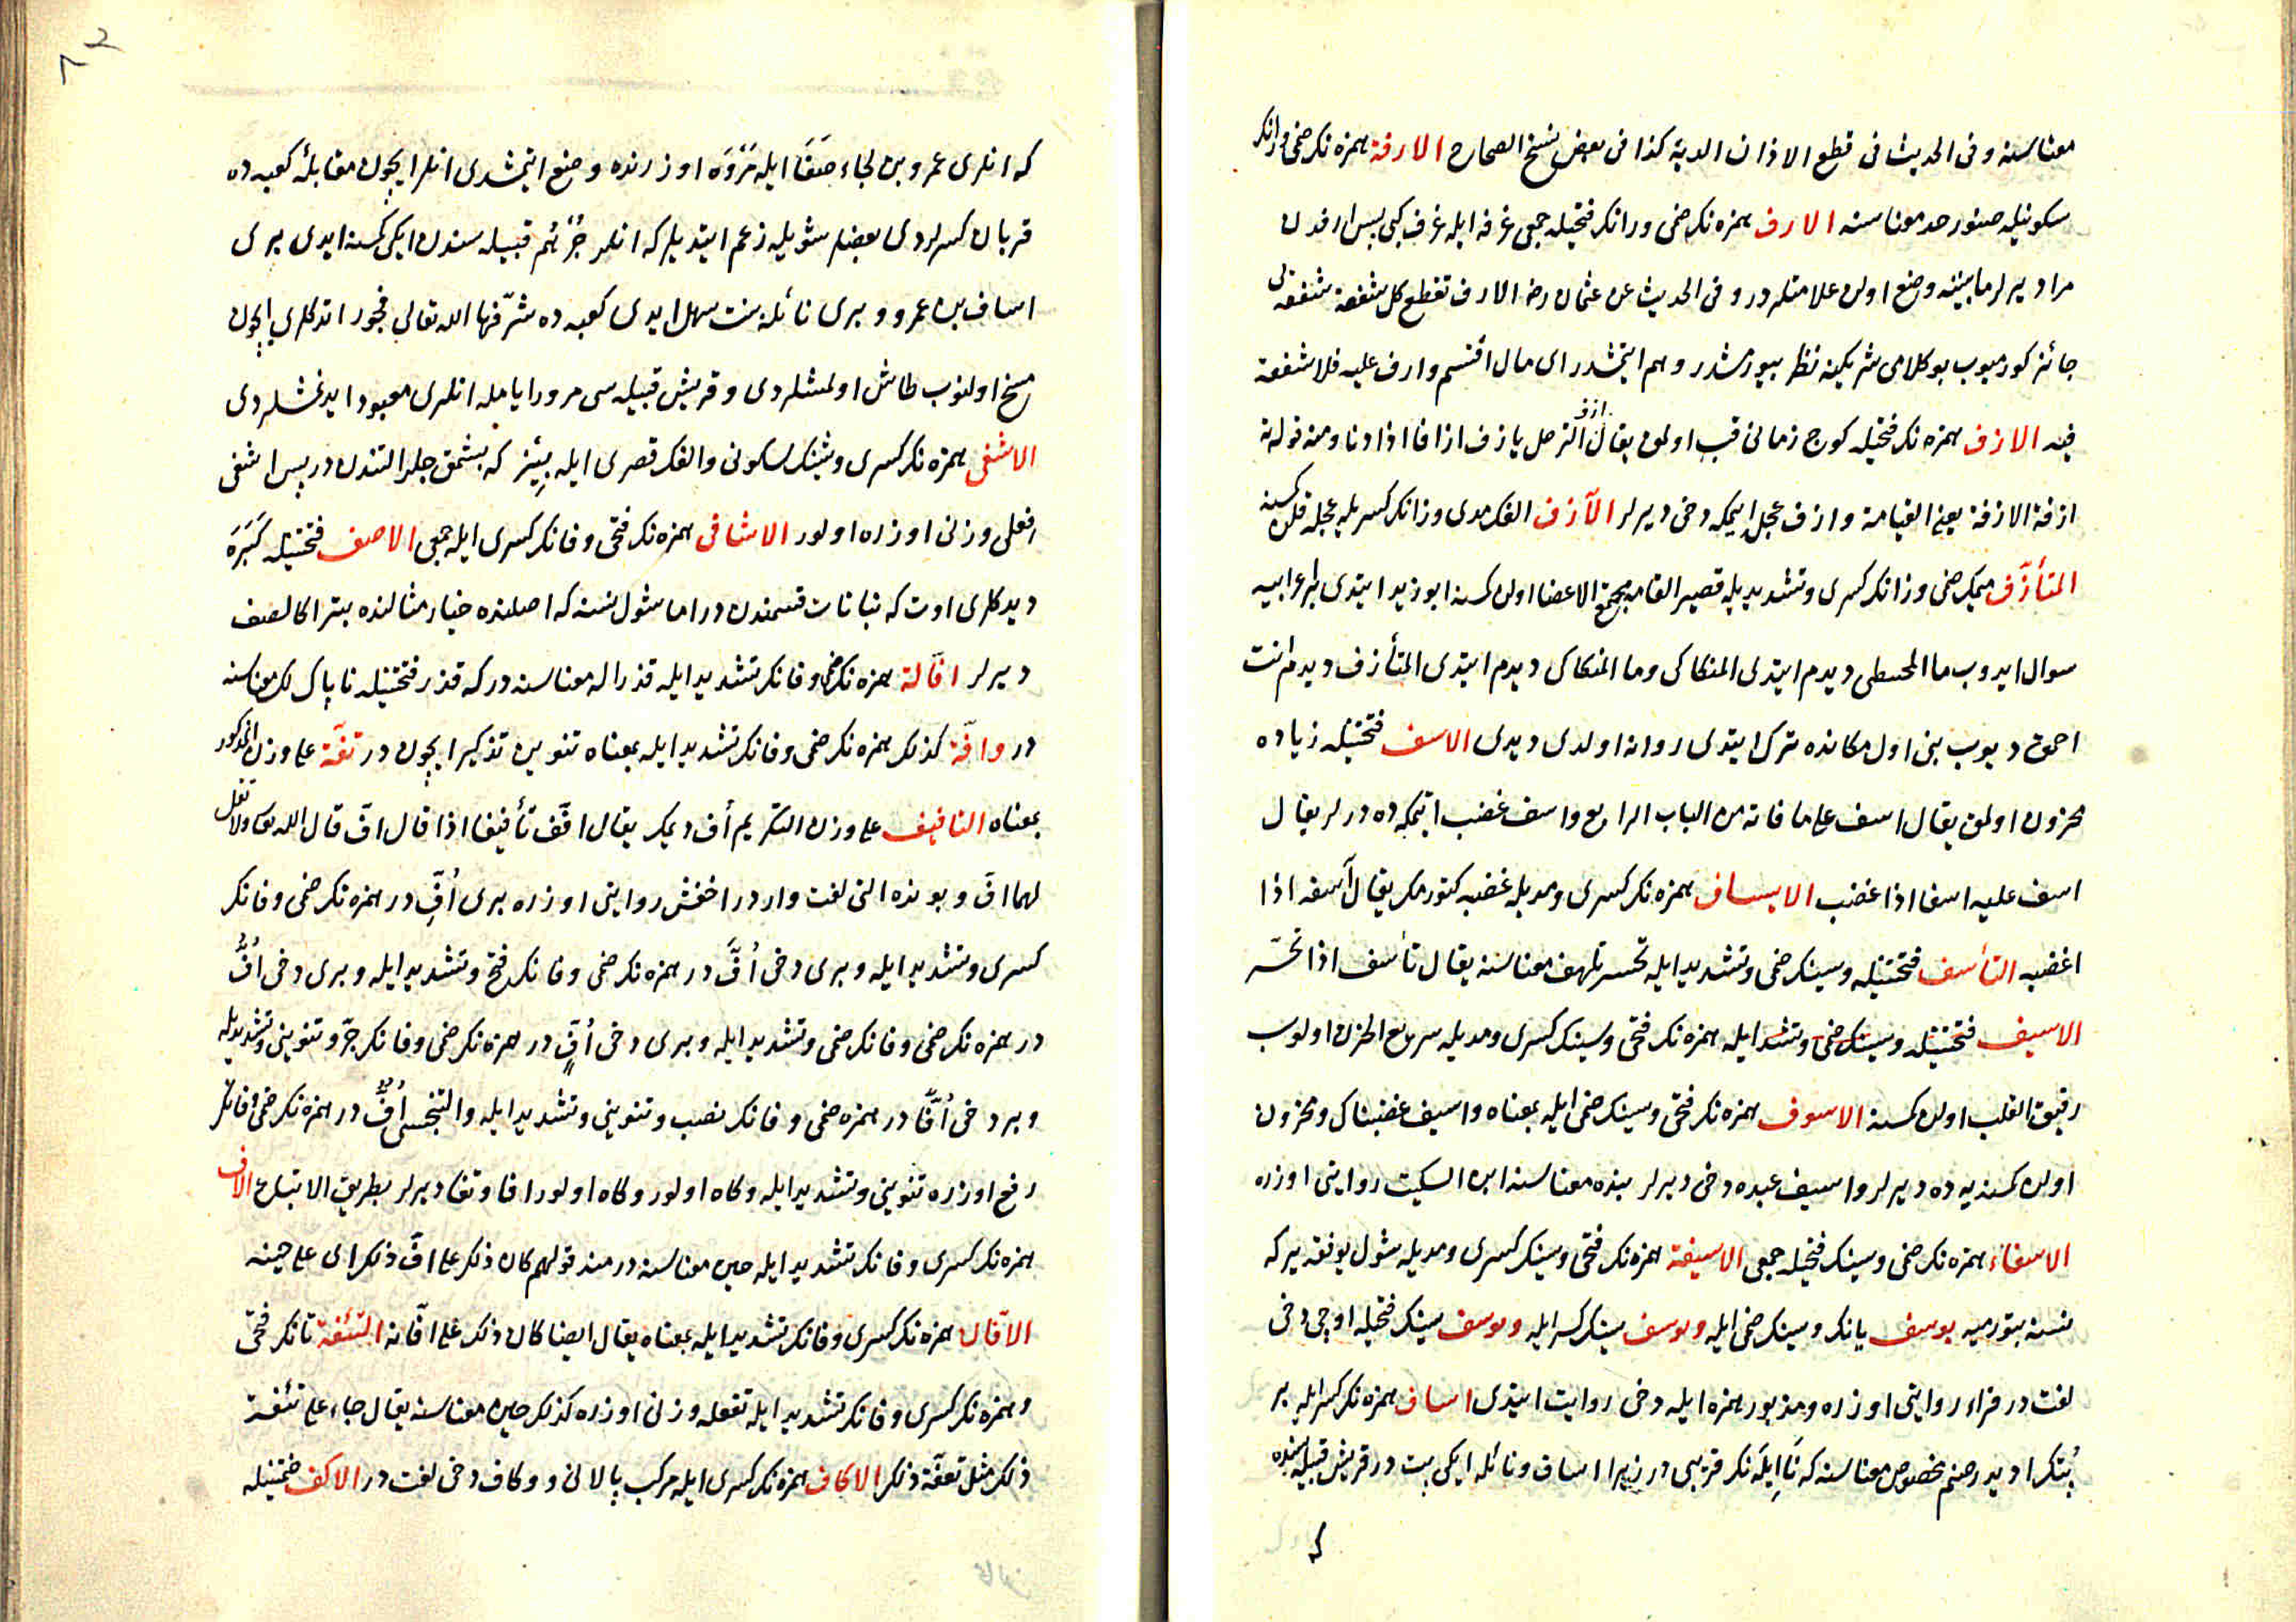 معناسنه وفى الحديث فى قطع الاذان الدية كذا فى بعض نسخ الصحاح الارفة همزه نك ضمى ورانك
سكونيله صنور حد معناسنه الارف همزه نك ضمى ورانك فتحيله جمعى غرفه ايله غرف كبى پس ارفدن
مراد يرلر مابينه وضع اولن علامتلر در وفى الحديث عن عثمان رضه الارف تقطع كل شفعة شفعه يى
جائز كورميوب بو كلامى شريكينه نظر بيورمشدر وهم ايتمشدر اى مال اقتسم وارف عليه فلا شفعة
فيه الازف همزه نك فتحيله كوچ زمانى قريب اولمق يقال ازف الترحل يازف ازفا اذا دنا ومنه قوله تع
ازفة الازفة يعنى القيامة وازف عجل ايتمكه دخى ديرلر الآزف الفك مدى وزانك كسريله عجله قلن كمسنه
المتأزف ميمك ضمى وزانك كسرى وتشديديله قصير القامه مجتمع الاعضا اولن كمسنه ابو زيد ايتدى بر اعرابيه
سوال ايدوب ما المحبنطى ديدم ايتدى المتكاكى وما المتكاكى ديدم ايتدى المتأزف ديدم انت
احمق ديوب بنى اول مكانده ترك ايتدى روانه اولدى ديدى الاسف فتحتيله زياده
محزون اولمق يقال اسف على ما فاته من الباب الرابع واسف غضب ايتمكه ده درلر يقال
اسف عليه اسفا اذا غضب الايساف همزه نك كسرى ومديله غضبه كتورمك يقال آسفه اذا
اغضبه التأسف فتحتيله وسينك ضمى وتشديد ايله تحسر تلهف معناسنه يقال تأسف اذا تحسر
الاسيف فتحتيله وسينك ضمى وتشد ايله همزه نك فتحى وسينك كسرى ومديله سريع الحزن اولوب
رقيق القلب اولن كمسنه الاسوف همزه نك فتحى وسينك ضمى ايله بمعناه واسيف غضبناك ومحزون
اولن كمسنه يه ده ديرلر واسيف عبده دخى ديرلر بنده معناسنه ابن السكيت روايتى اوزره
الاسفاء همزه نك ضمى وسينك فتحيله جمعى الاسيفة همزه نك فتحى وسينك كسرى ومديله شول يوفقه يركه
نسنه بتورميه يوسف يانك وسينك ضمى ايله ويوسف سينك كسرايله ويوسف سينك فتحيله اوچى دخى
لغت در فراء روايتى اوزره ومذبور همزه ايله دخى روايت ايتدى اساف همزه نك كسرايله بر
بتك اديدر صنم مخصوص معناسنه كه نايله نك قرينى در زيرا اساف ونائله ايكى بت در قريش قبيله سنده
كه
كه انلرى عمرو بن لجاء صفا ايله مروه اوزرنده وضع ايتمشدى انلر ايچون مقابله كعبه ده
قربان كسرلردى بعضلر شويله زعم ايتديلر كه انلر جرهم قبيله سندن ايكى كمسنه ايدى برى
اساف بن عمرو وبرى نائلة بنت سهل ايدى كعبه ده شرّفها الله تعالى فجور اتدكلرى ايچون
مسخ اولنوب طاش اولمشلردى وقريش قبيله سى مرور ايامله انلرى معبود ايدنمشلردى
الاشفى همزه نك كسرى وشينك سكونى والفك قصرى ايله بيز كه بشمق جلد التندن در پس اشفى
افعلى وزنى اوزره اولور الاشافى همزه نك فتحى وفانك كسرى ايله جمعى الاصف فتحتيله كبره
ديدكلرى اوت كه نباتات قسمندن در اما شول نسنه كه اصلنده خيار مثالنده بتر اكا لصف
ديرلر افّا له همزه نك ضمى وفانك تشديد ايله قذرا له معناسنه در كه قذر فتحتيله ناپاك لك معناسنه
در وافّة كذلك همزه نك ضمى وفانك تشديد ايله بمعناه تنوين تنكير ايچون در تفّة على وزن المذكور
بمعناه التافيف على وزن التكريم أف ديمك يقال افّف تأفيفا اذا قال افّ قال الله تعالى ولا تقل
لهما افّ وبونده التى لغت واردر اخفش روايتى اوزره برى أُفِّ در همزه نك ضمى وفانك
كسرى وتشديد ايله وبرى دخى أُفَّ در همزه نك ضمى وفانك فتح وتشديد ايله وبرى دخى أُفُّ
در همزه نك ضمى وفانك ضمى وتشديد ايله وبرى دخى أُفٍّ در همزه نك ضمى وفانك جرّ وتنوينى وتشديديله
وبر دخى أُفًّا در همزه ضمى وفانك نصب وتنوينى وتشديد ايله والتنجسى أُفٌّ در همزه نك ضمى وفانك
رفع اوزره تنوينى وتشديد ايله وكاه اولور وكاه اولور افا وتفا ديرلر بطريق الاتباع الاف
همزه نك كسرى وفانك تشديد ايله حين معناسنه در منه قولهم كان ذلك على افّ ذلك اى على حينه
الافّان همزه نك كسرى وفانك تشديد ايله بمعناه يقال ايضا كان ذلك على افّانه التئفة تانك فتحى
وهمزه نك كسرى وفانك تشديد ايله تفعله وزنى اوزره كذلك حين معناسنه يقال جاء على تئفة
ذلك مثل تعفّة ذلك الاكاف همزه نك كسرى ايله مركب پالانى ووكاف دخى لغت در الاكف ضمتيله